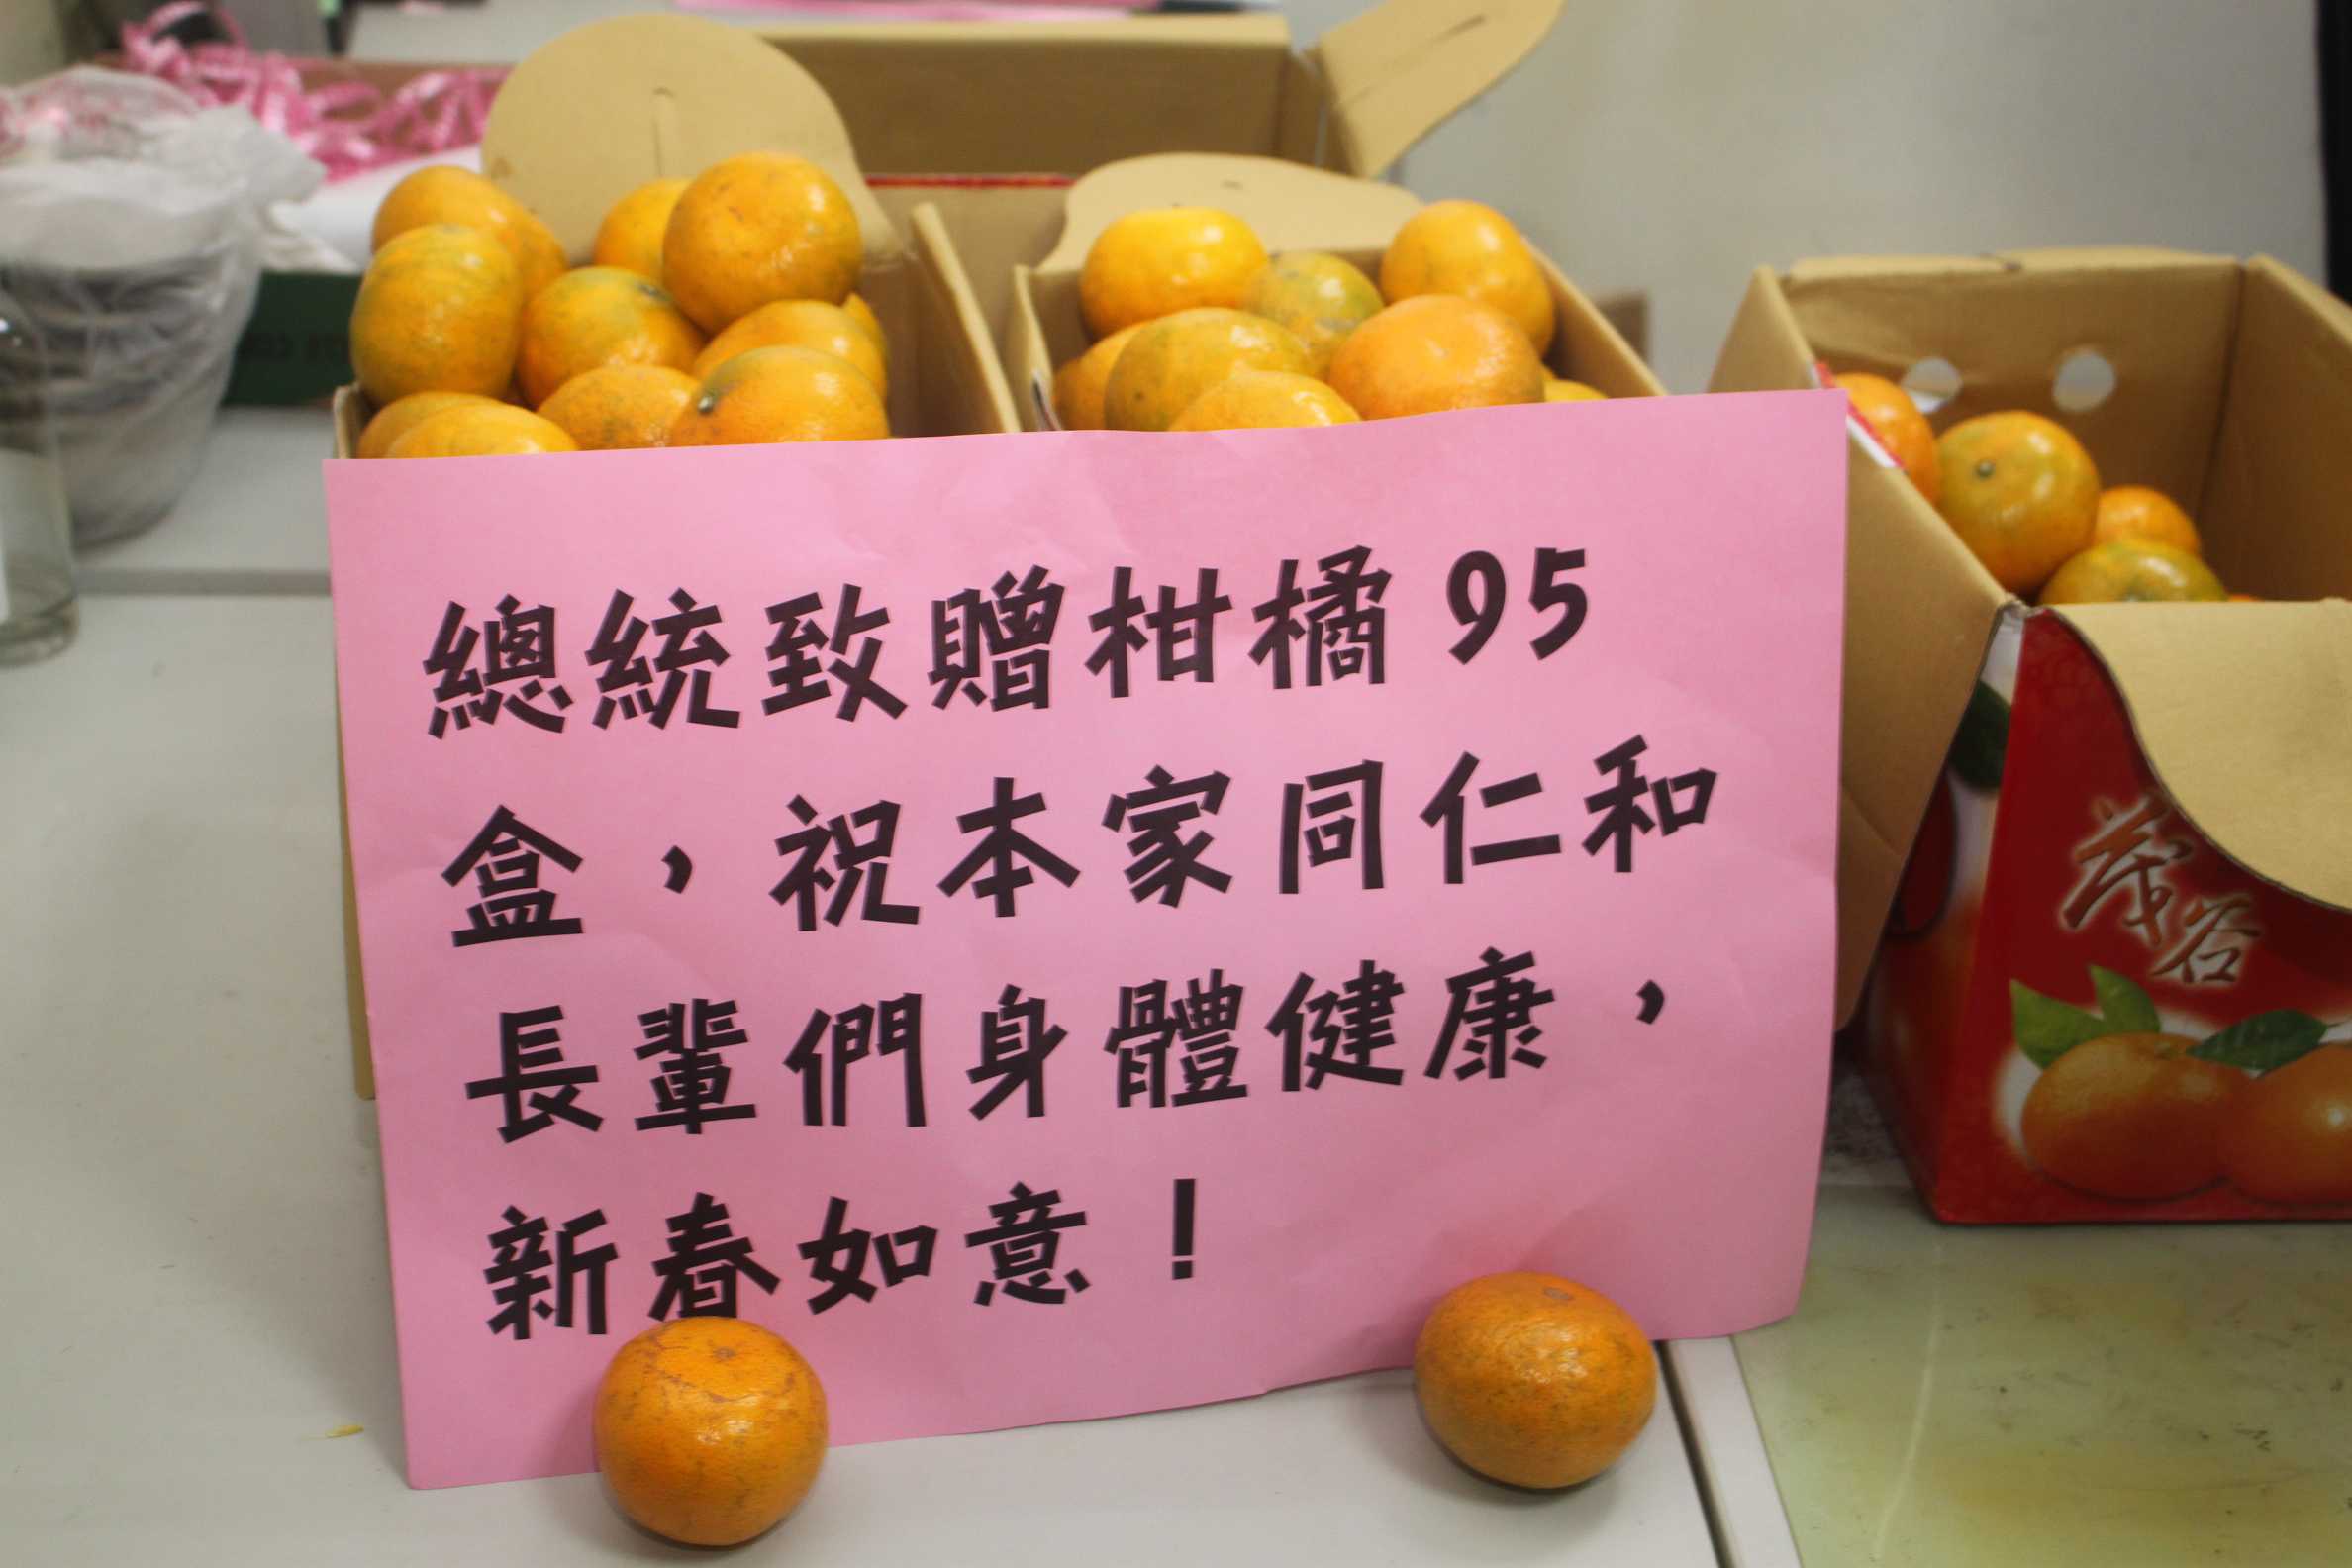 總統致贈柑橘95
盒，祝本家同仁和
長輩們身體健康，
新春如意！
茂谷